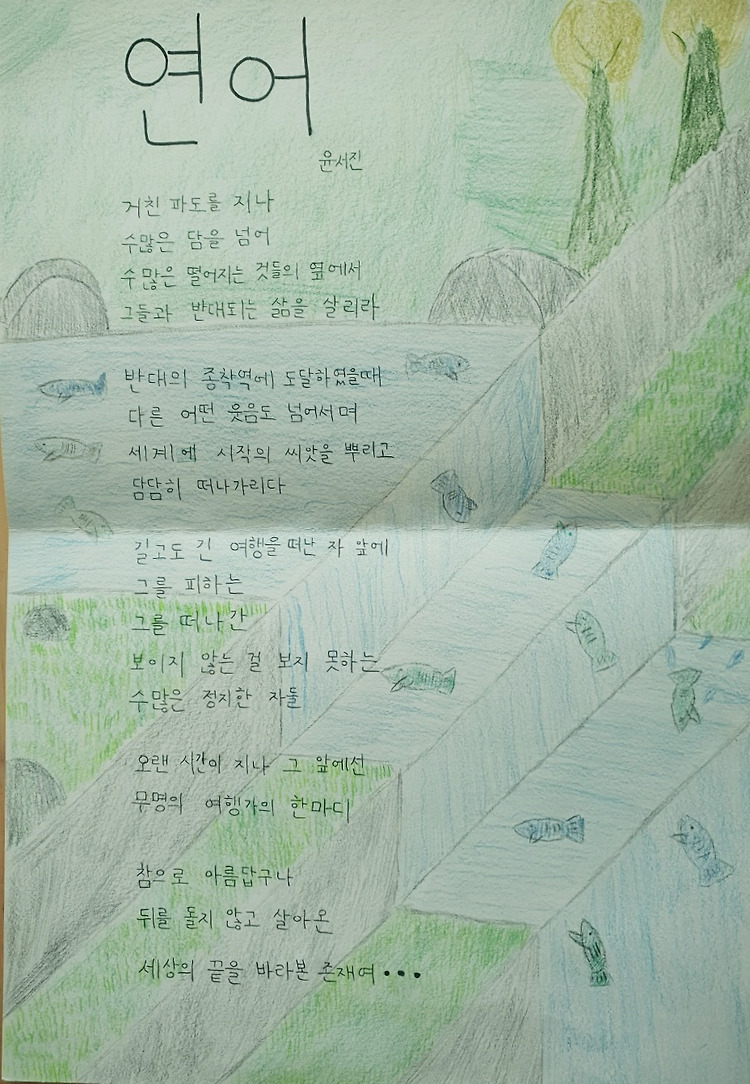 연어
윤서진
거친 파도를 지나
수많은 담을 넘어
수많은 떨어지는 것들의 옆에서
그들과 반대되는 삶을 살리라
반대의 종착역에 도달하였을때
다른 어떤 웃음도 넘어서며
세계에 시작의 씨앗을 뿌리고
담담히 떠나가리다
길고도 긴 여행을 떠난 자 앞에
그를 피하는
그를 떠나간
보이지 않는 걸 보지 못하는
수많은 정지한 자들
오랜 시간이 지나 그 앞에선
무명의 여행가의 한마디
참으로 아름답구나
뒤를 돌지 않고 살아온
세상의 끝을 바라본 존재여...